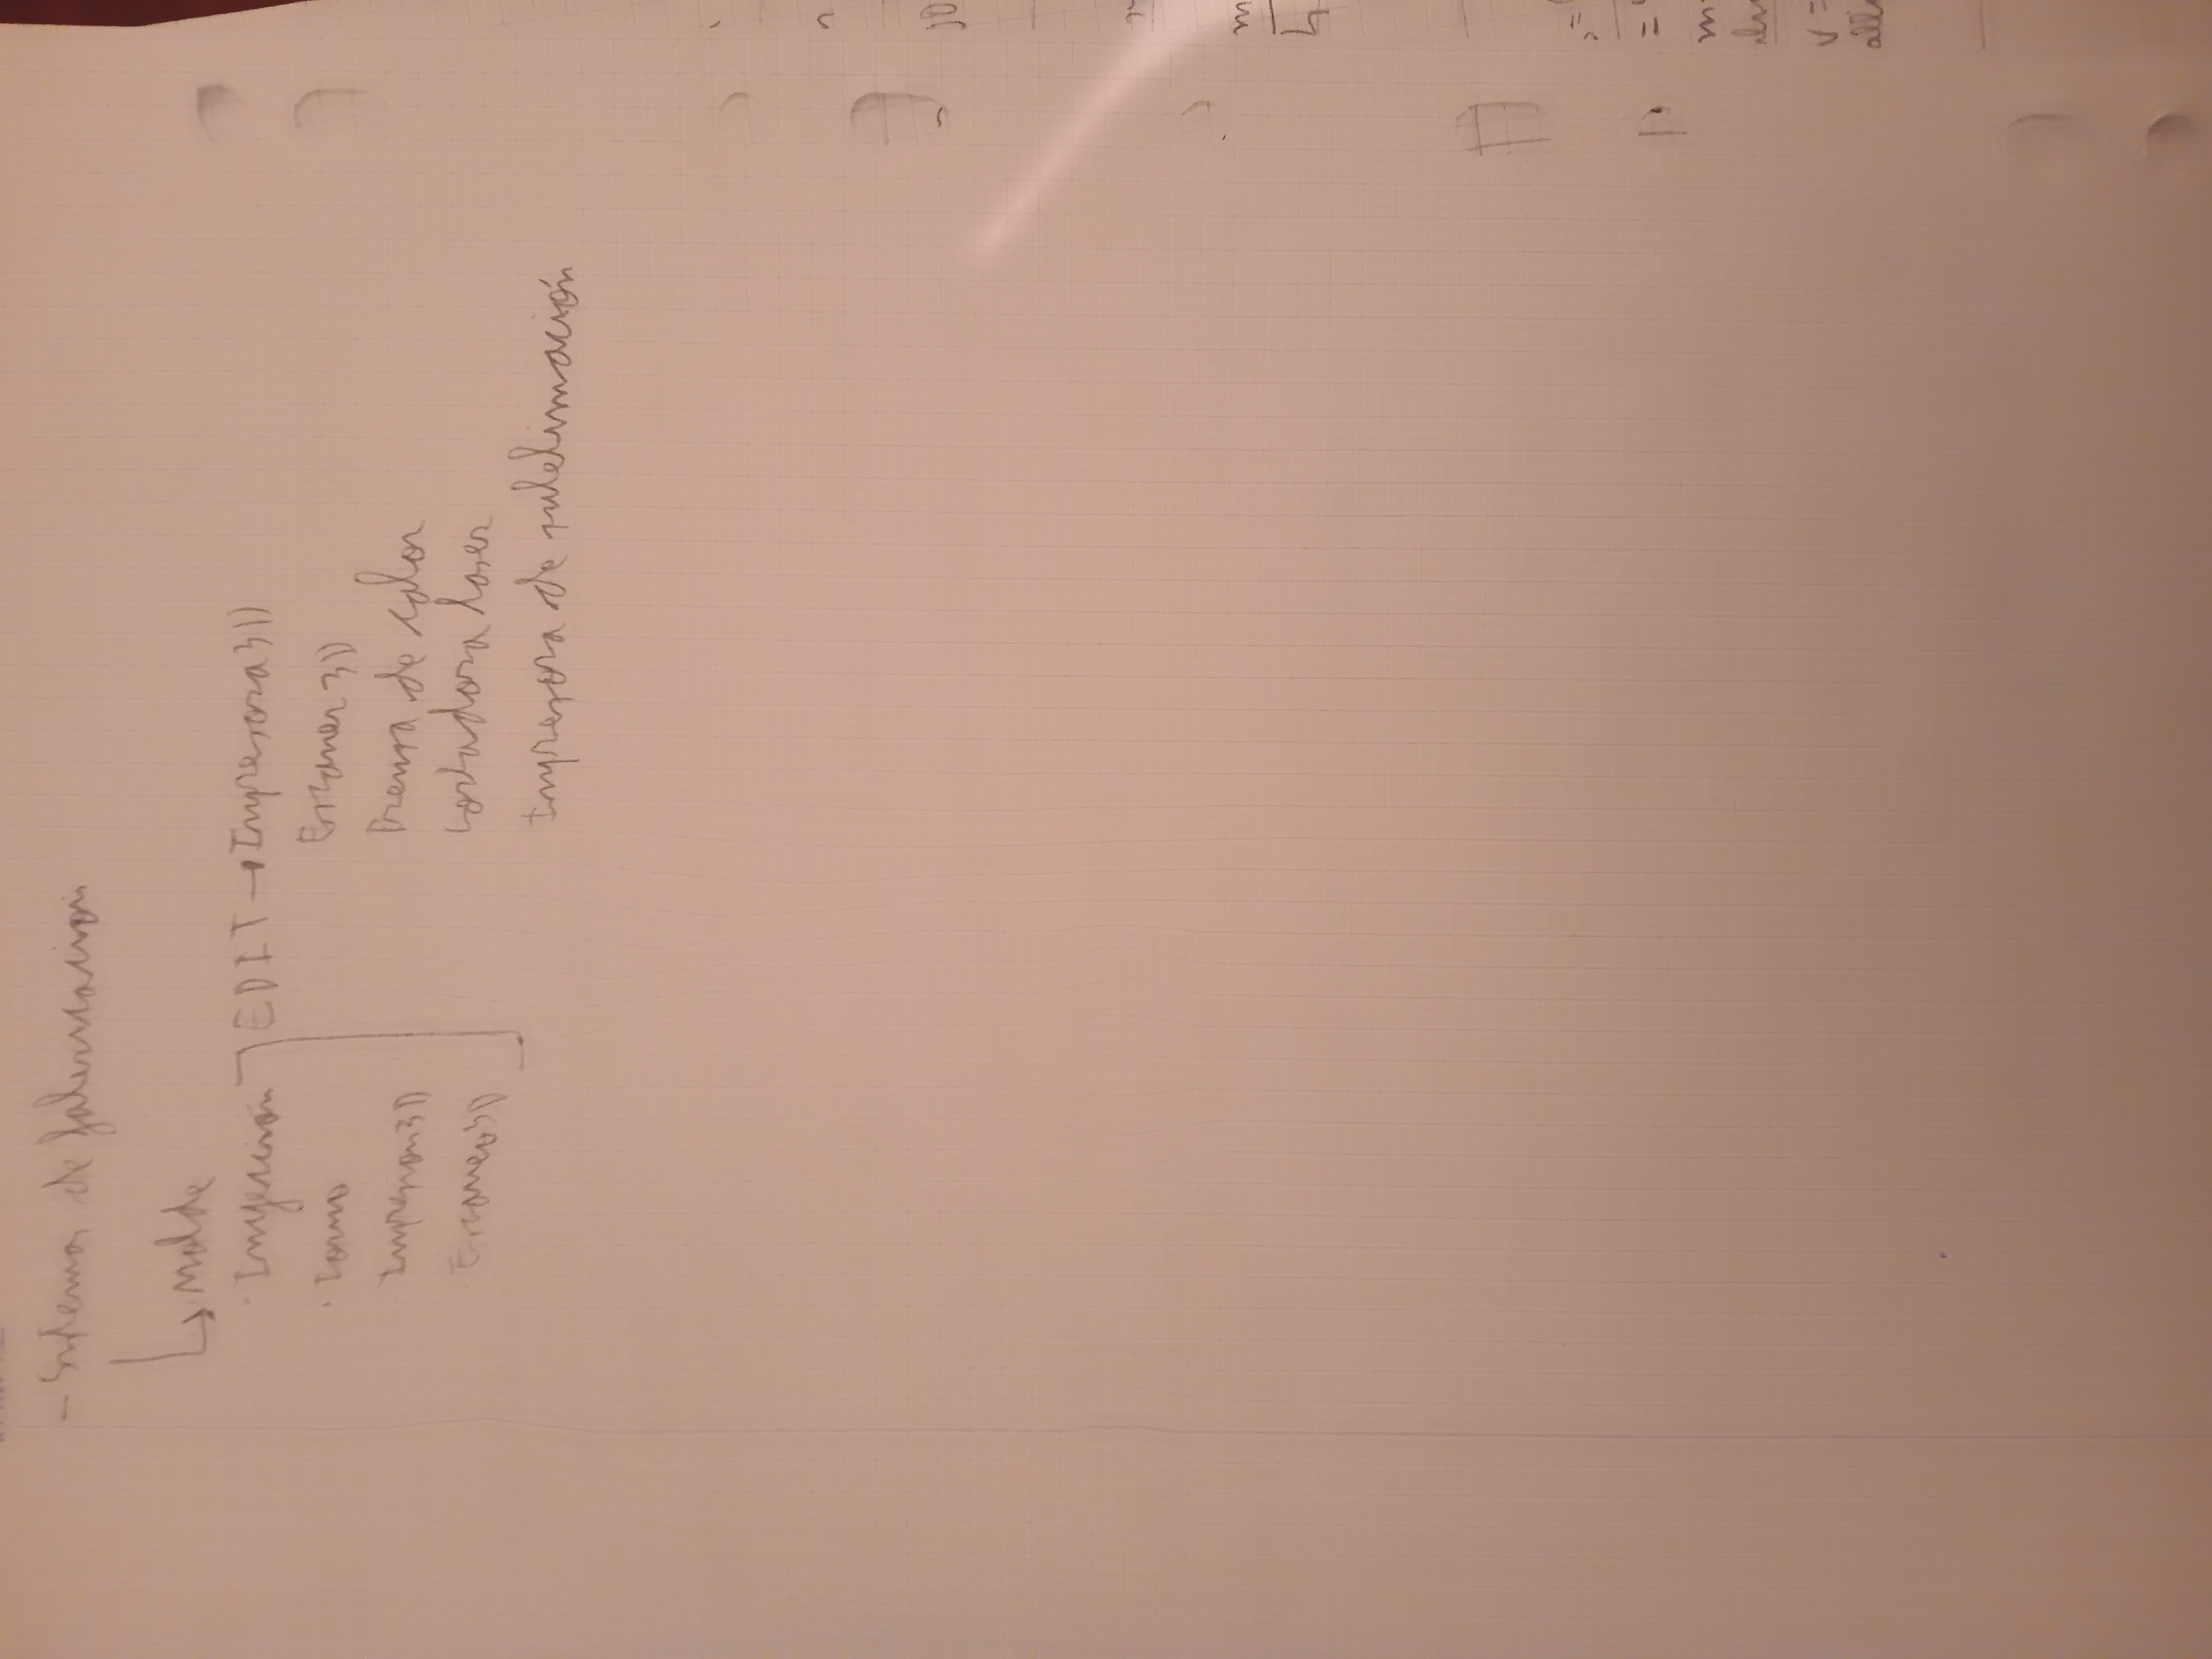 - Sistemas de fabricación
↳ Molde
· Inyección
· Torno
Impresion 3D
· Escaneo 3D
EDIT → Impresora 3D
Escaner 3D
Prensa de calor
Cortadora laser
Impresora de sublimación